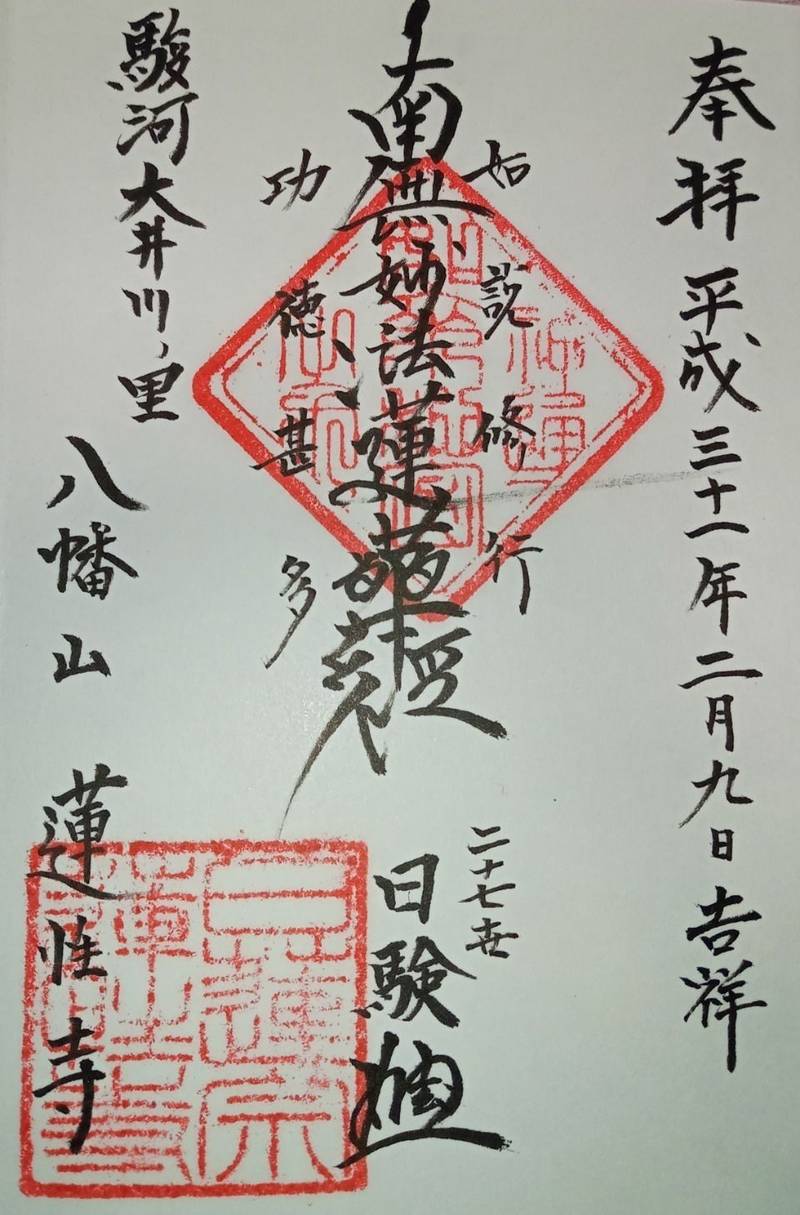 奉拝 平成三十一年二月九日 吉祥
如説修行
南無妙法蓮華経
功徳甚多
二十七世
日験
駿河大井川ノ里
八幡山 蓮性寺